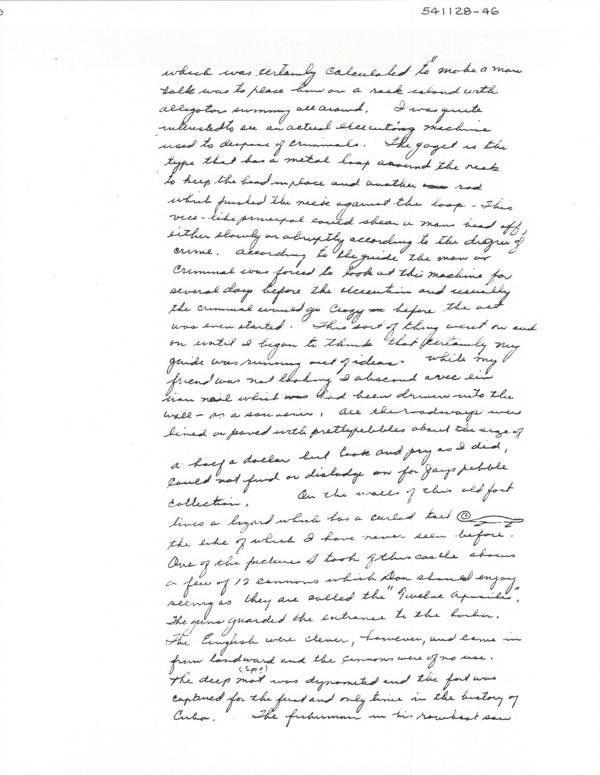 541128-46
which was certainly calculated to "make a man
talk was to place him on a rock island with
alligator swimming all around. I was quite
interested to see an actual executing machine
used to dispose of criminals. The gaget is the
type that has a metal loop around the neck
to keep the head in place and another rod
which pushed the neck against the loop - This
vice-like principal could shear a mans head off,
either slowly or abruptly according to the degree of
crime. According to the guide the man or
criminal was forced to look at this machine for
several days before the execution and usually
the criminal would go crazy before the act
was even started. This sort of thing went on and
on until I began to think that certainly my
guide was running out of ideas. While my
friend was not looking I abscond avec ein
iron nail which was had been driven into the
wall - as a souvenir. All the roadways were
lined or paved with pretty pebbles about the size of
a half a dollar but look and pry as I did,
could not find or dislodge on for Jays pebble
collection. On the walls of this old fort
lives a lizard which has a curled tail
the like of which I have never seen before.
One of the pictures I took of this castle shows
a few of 12 cannons which Don should enjoy
seeing as they are called the "Twelve Apostles".
The guns guarded the entrance to the harbor.
The English were clever, however, and came in
from landward and the cannons were of no use.
(sp?)
The deep mot was dynamited and the fort was
captured for the first and only time in the history of
Cuba. The fisherman in his rowboat saw